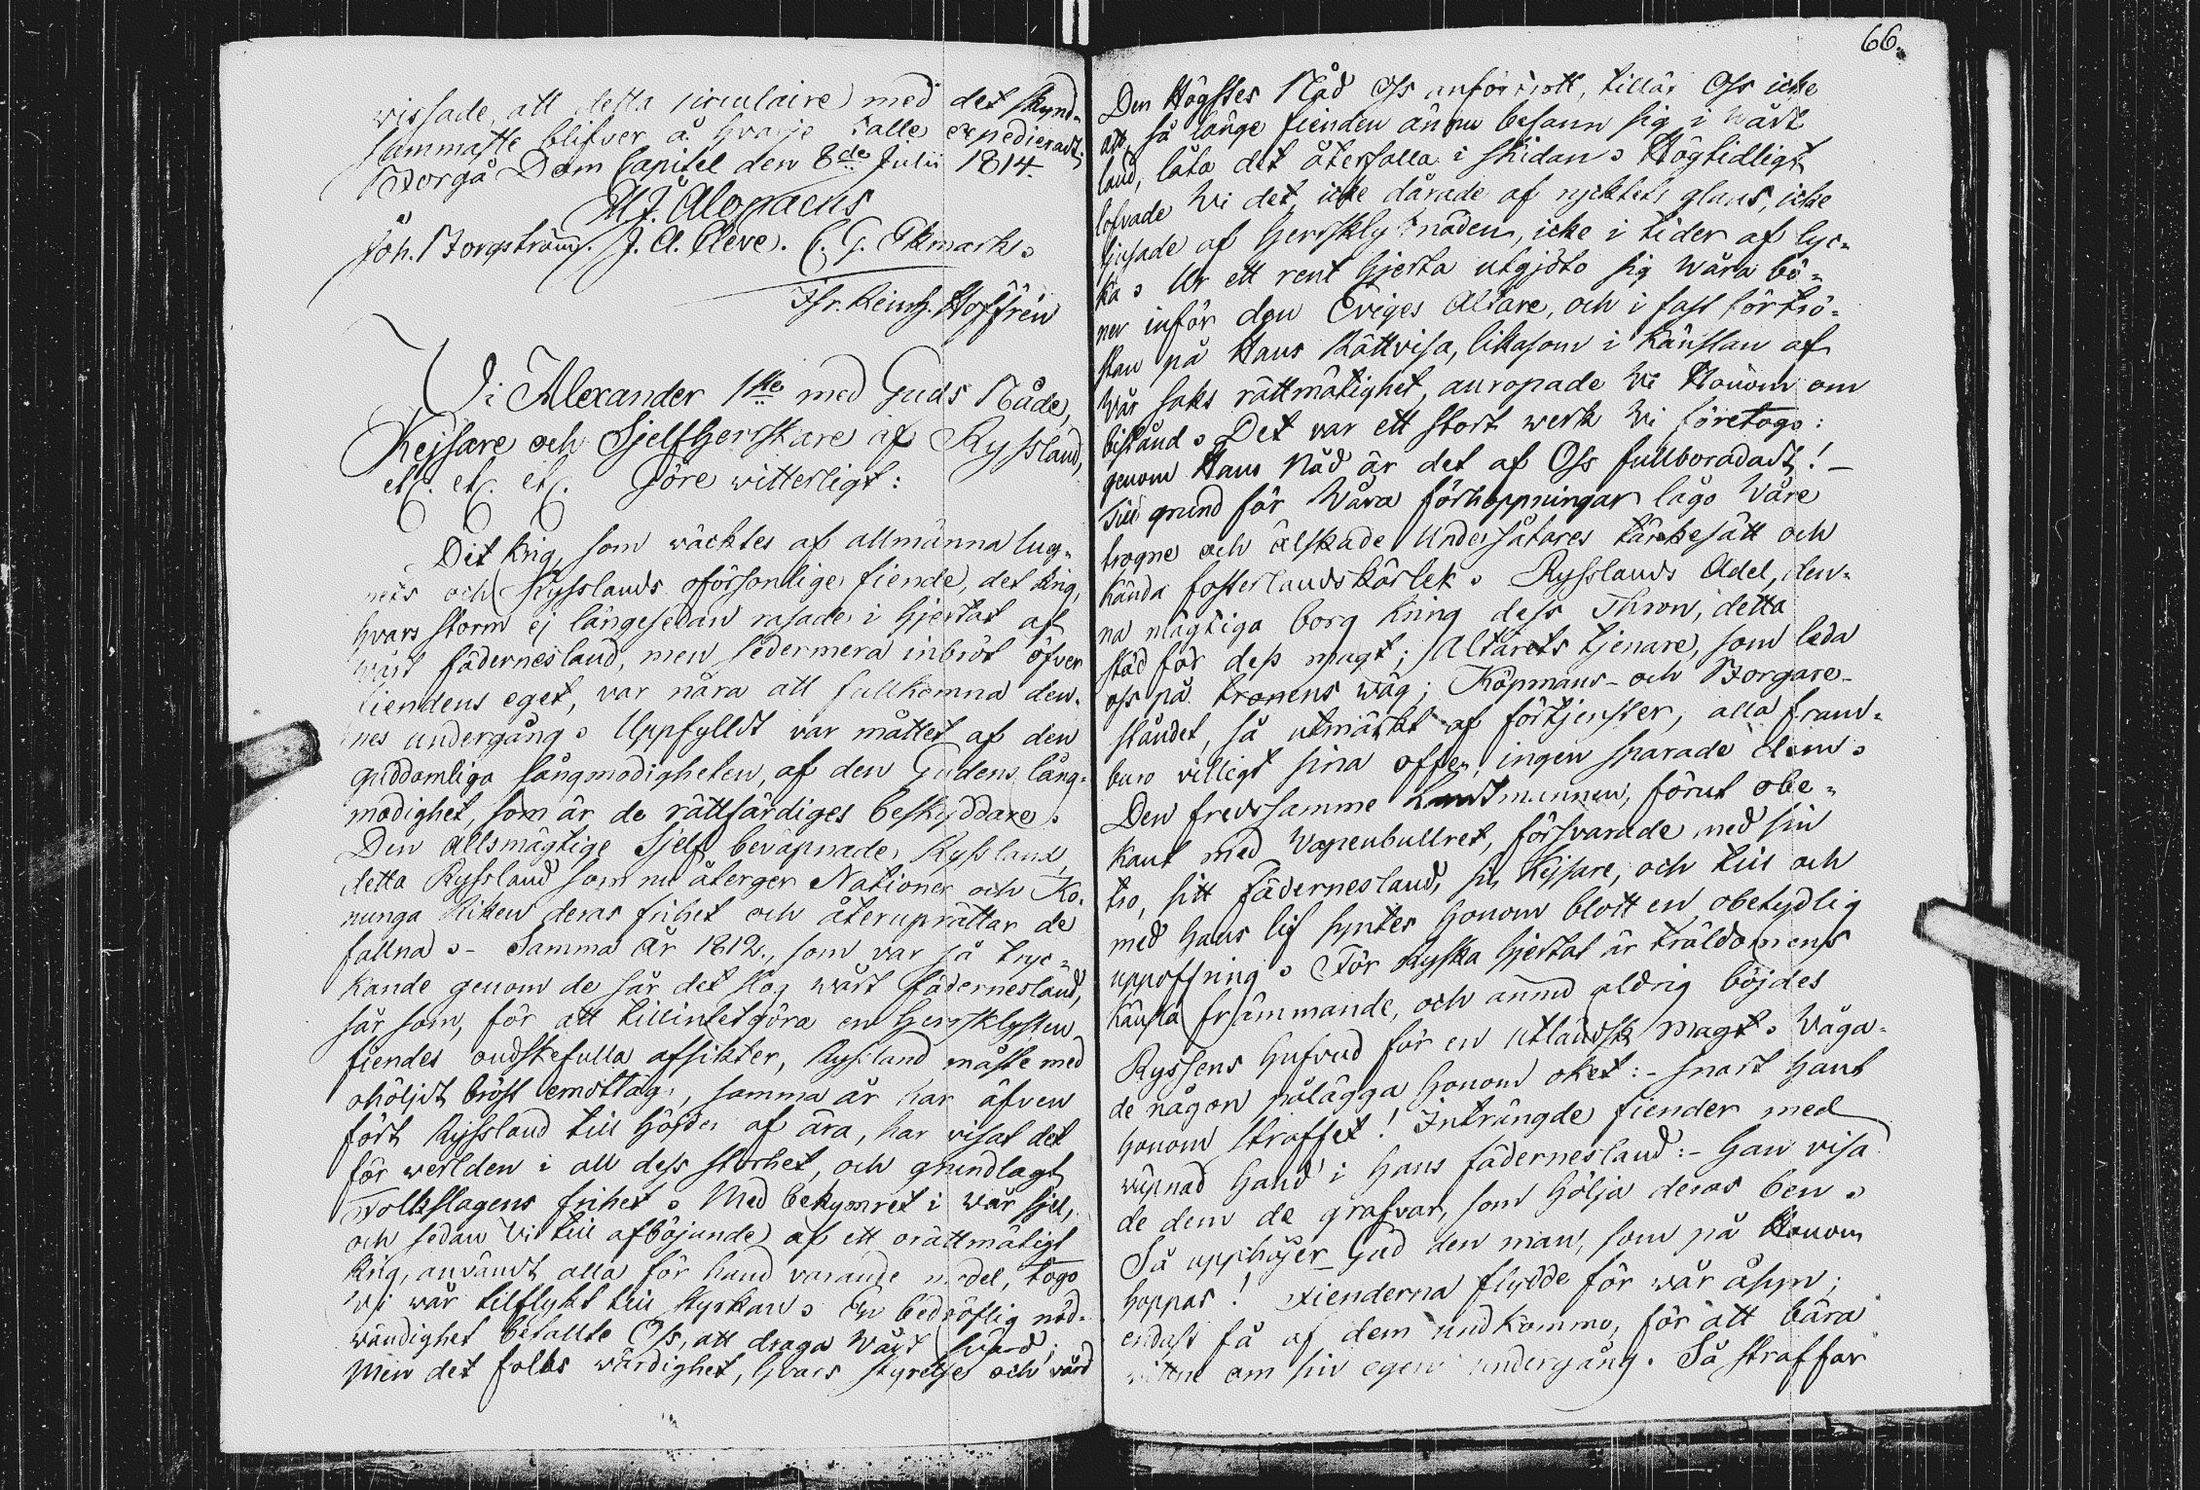 vissade, att detta circulaire med det skynd-
sammaste blifver å hvarje ställe expedieradt;
Borgå Dom Capitel den 8de Julii 1814.
M. J. Alopaeus
Joh. Borgström. J. A. Cleve. C. G. Ekmark.
Fr. Reinh. Hoffrén
Vi Alexander 1ste med Guds Nåde,
Kejsare och Sjelfherrskare af Ryssland,
etc. etc. etc. Göre witterligt:
Det krig, som väcktes af allmänna lug-
nets och Rysslands oförsonlige fiende, det krig,
hvars storm ej längesedan rasade i hjertat af
wårt fädernesland, men sedermera inbröt öfver
fiendens eget, var nära att fullkomna den-
nes undergång. Uppfylldt var måttet af den
guddomliga långmodigheten, af den Gudens lång-
modighet, som är de rättfärdiges beskyddare.
Den Allsmägtige Sjelf beväpnade Ryssland,
detta Ryssland som nu återger Nationer och Ko-
nunga Riken deras frihet och återupprättar de
fallna. - Samma år 1812., som var så tryc-
kande genom de sår det slog wårt fädernesland,
sår som, för att tillintetgöra en herrsklysten
fiendes ondskefulla afsikter, Ryssland måste med
ohöljdt bröst emottaga, samma år har äfven
fört Ryssland till höjden af ära, har visat det
för werlden i all dess storhet, och grundlagt
Folkslagens frihet. Med bekymret i wår själ,
och sedan Vi till afböjande af ett orättmätigt
krig, användt alla för hand varande medel, togo
Vi wår tilflykt till styrkan. En bedröflig nöd-
wändighet befallte Oss, att draga Wårt svärd;
Men det folks wärdighet, hvars styrelse och vård
66.
Den Högstes Nåd Oss anförtrott, tillät Oss icke
att, så länge fienden ännu befann sig i wårt
land, låta det återfalla i skidan. Högtidligt
lofvade Vi det, icke dårade af ryktets glans, icke
tjusade af herrsklystnaden, icke i tider af lyc-
ka. Ur ett rent hjerta utgjöto sig wåra bö-
ner inför den Eviges Altare, och i fast förtrö-
stan på Hans Rättvisa, likasom i känslan af
Vår saks rättmätighet, anropade Vi Honom om
bistånd. Det var ett stort werk Vi företogo:
genom Hans Nåd är det af Oss fullbordadt! -
Till grund för Våra förhoppningar lågo Våre
trogne och älskade Undersåtares tänkesätt och
kända fosterlandskärlek. Rysslands Adel, den-
na mägtiga borg kring dess Thron, detta
stöd för dess magt; Altarets tjenare, som leda
oss på tronens wäg; Köpmans- och Borgare-
ståndet, så utmärkt af förtjenster, alla fram-
buro villigt sina offer, ingen sparade dem.
Den fredssamme Landtmannen, förut obe-
kant med Vapenbullret, försvarade med sin
tro, sitt fädernesland, sin Kejsare, och till och
med hans lif syntes honom blott en obetydlig
uppoffring. För Ryska hjertat är träldomens
känsla främmande, och ännu aldrig böjdes
Ryssens hufvud för en utländsk magt. Våga-
de någon pålägga honom oket: - snart hant
honom straffet! Inträngde fiender med
väpnad hand i hans fädernesland: - han visa
de dem de grafvar, som hölja deras ben.
Så upphöjer Gud den man, som på Honom
hoppas! Fienderna flydde för wår åsyn;
endast få af dem undkommo, för att bära
vittne om sin egen undergång. Så straffar